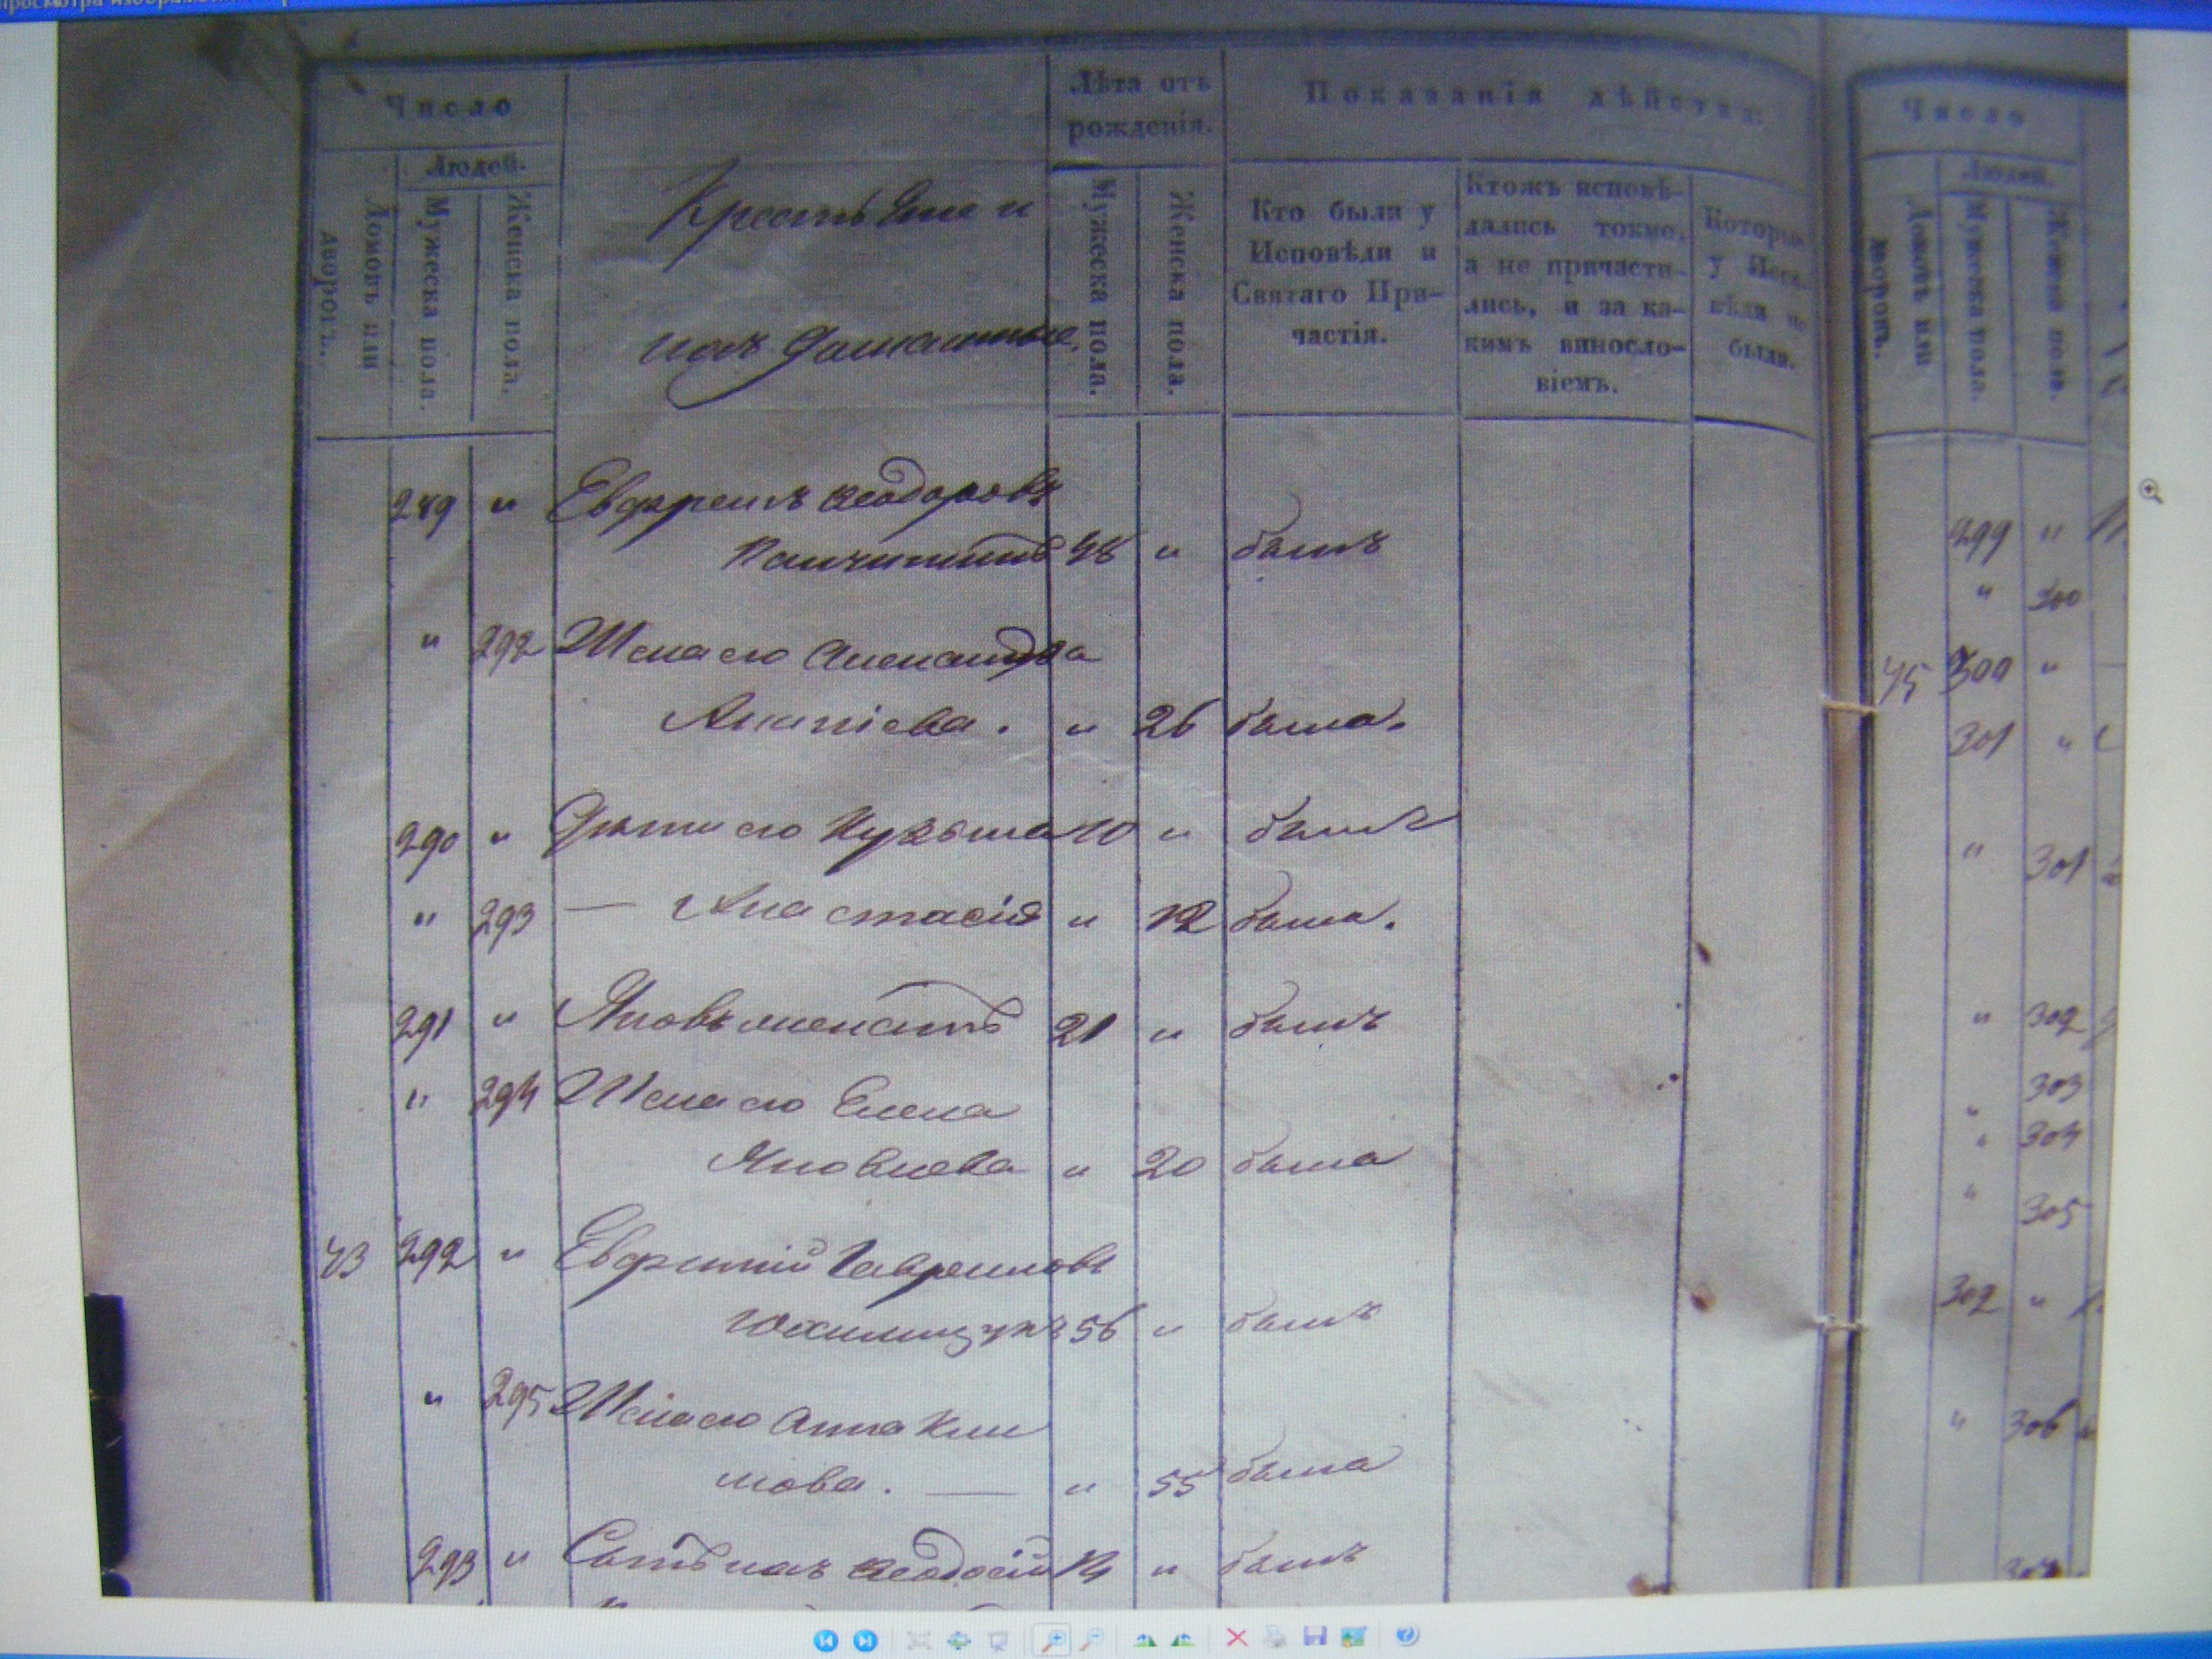 Число
Лѣта отъ
рожденія.
Показанія дѣйства:
Людей.
Домовъ или
дворовъ.
Мужеска пола.
Женска пола.
Крестьяне и
ихъ домашные.
Мужеска пола.
Женска пола.
Кто были у
Исповѣди и
Святаго При-
частія.
Ктожъ исповѣ-
дались токмо,
а не причасти-
лись, и за ка-
кимъ виносло-
віемъ.
Которые
у Испо-
вѣди не
были.
289 " Евфремъ Ѳеодоровъ
48 " былъ
" 292 Жена его Александра
Ананіева. " 26 была.
290 " Дѣти его Кузьма 10 " былъ
" 293 — Анастасія " 12 была.
291 " Яковъ 21 " былъ
" 294 Жена его Елена
Яковлева " 20 была
43 292 " Евфимій Гавриловъ
56 " былъ
" 295 Жена его Анна Кли
мова. — " 55 была
293 " Сынъ ихъ Ѳеодосій 14 " былъ
Число
Людей.
Домовъ или
дворовъ.
Мужеска пола.
Женска пола.
299 "
" 300
45 300 "
301 "
" 301
" 302
" 303
" 304
" 305
302 "
" 306